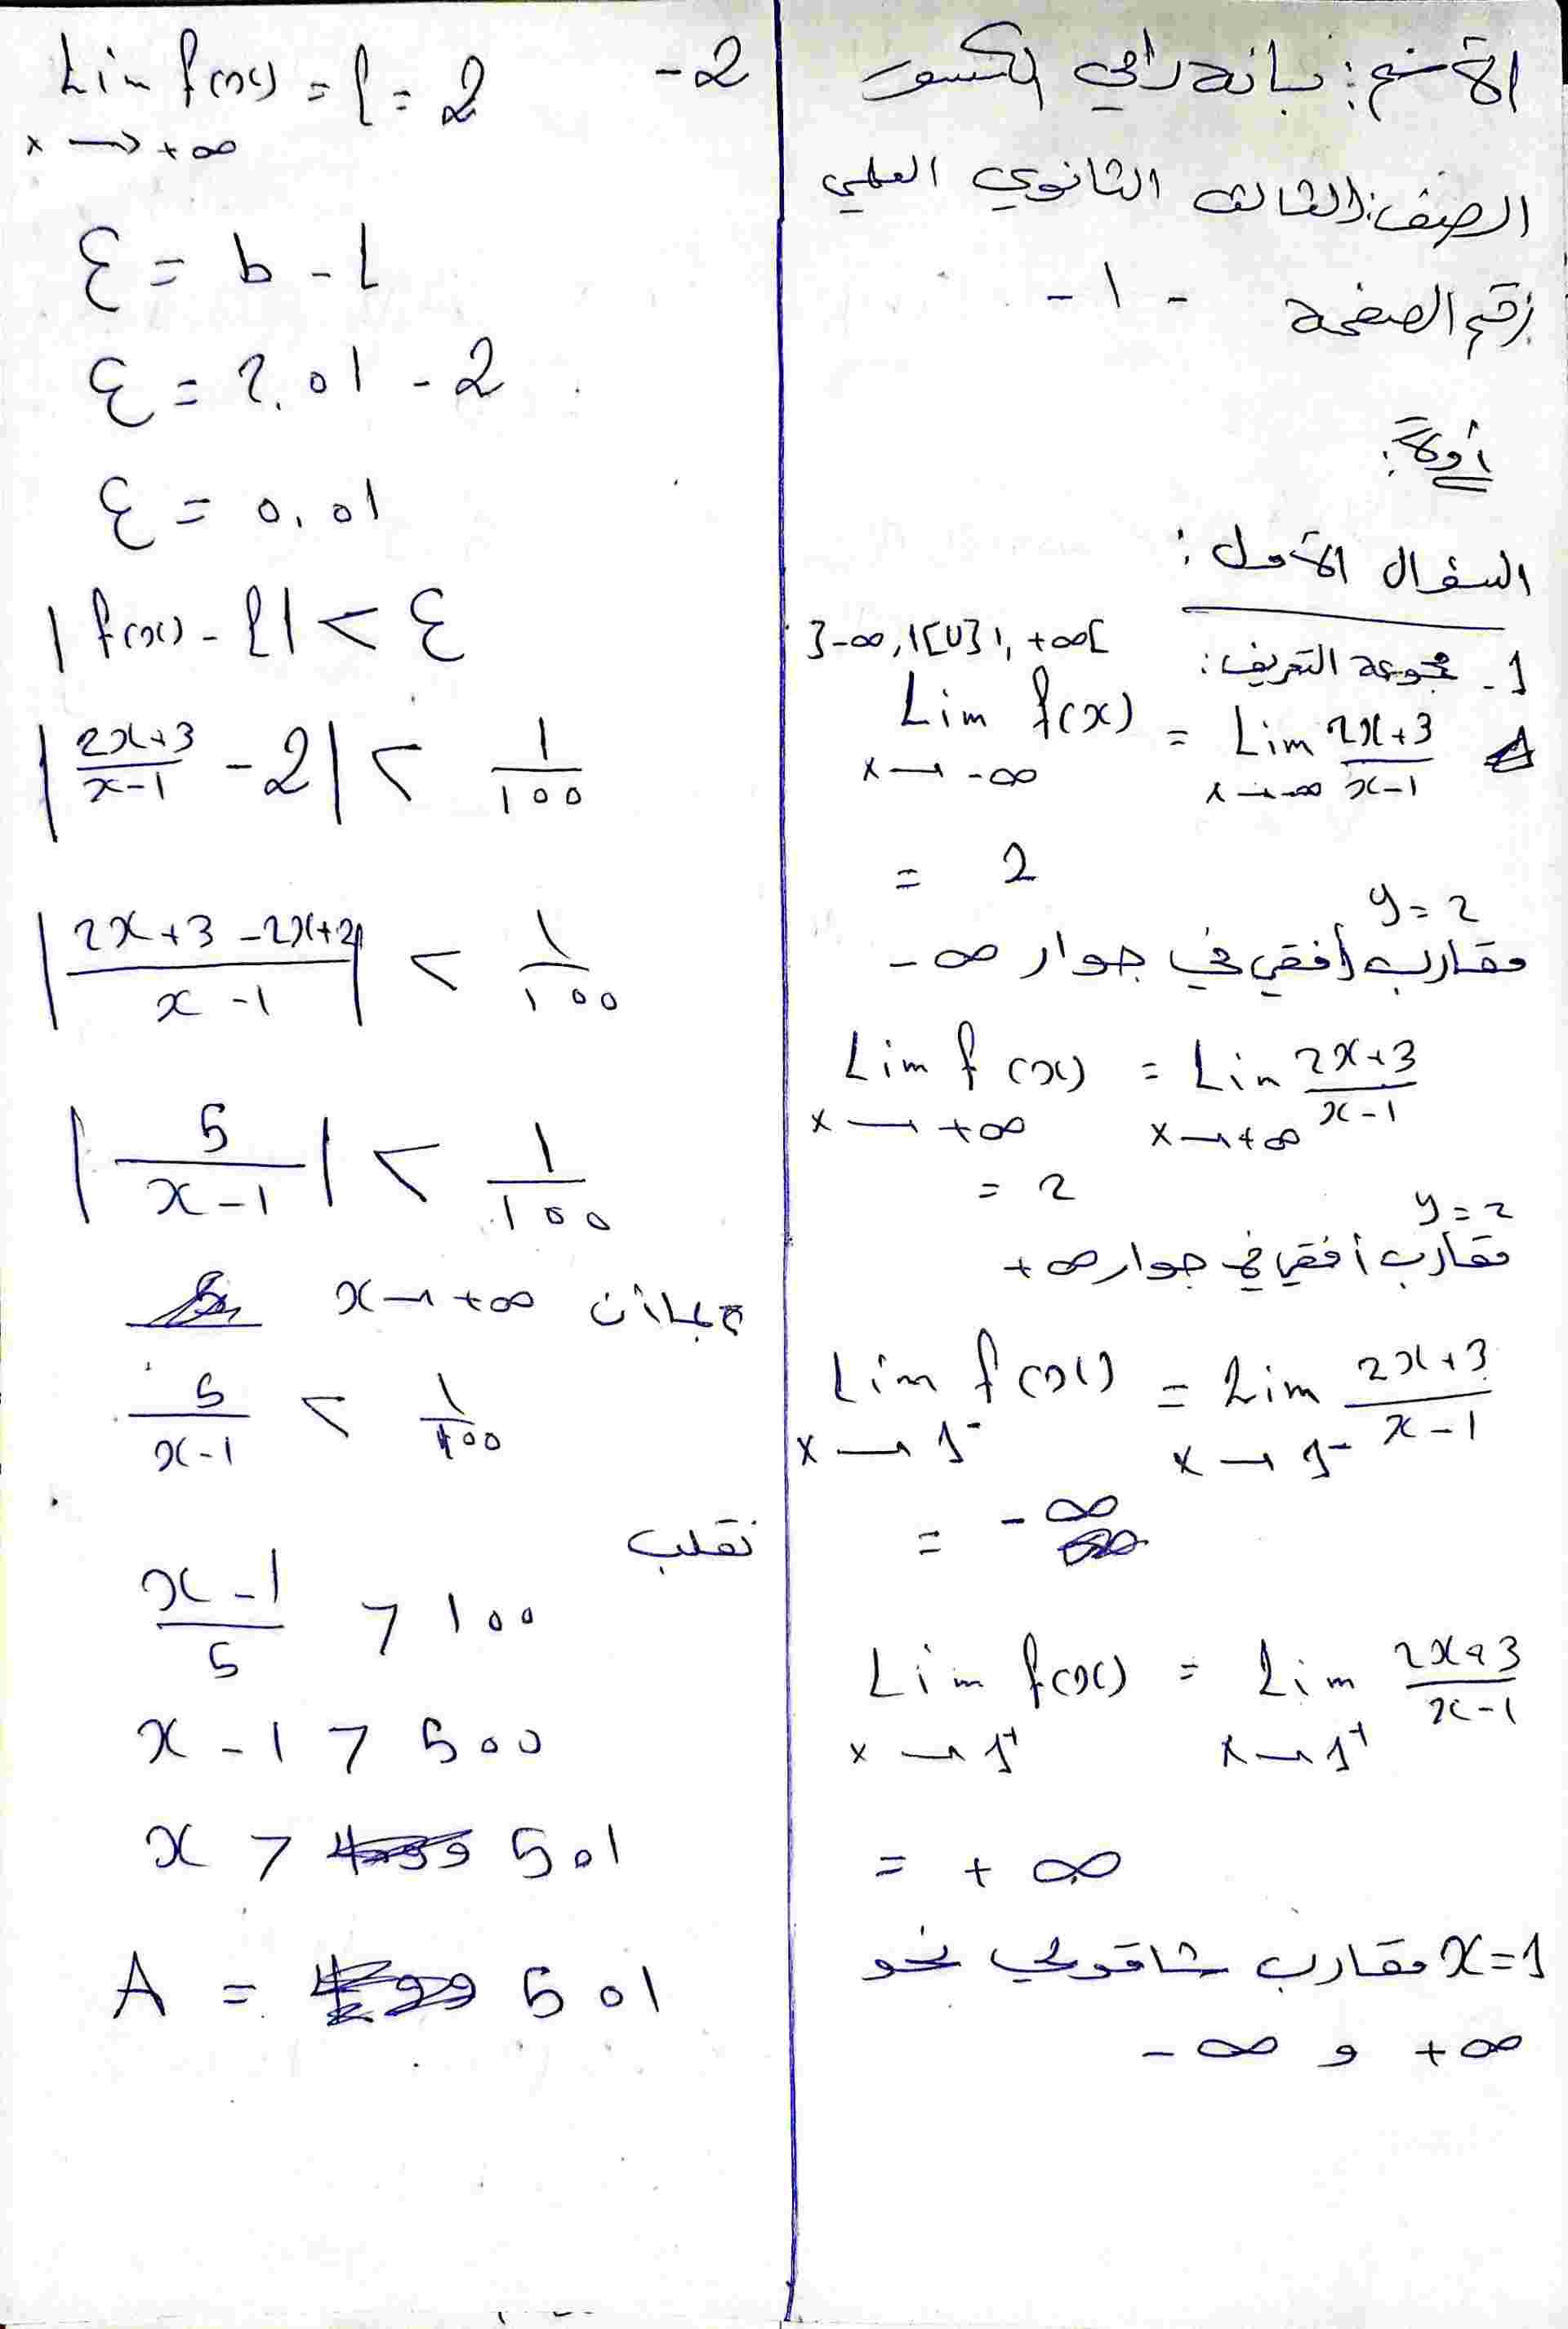 الأسم: بانه رامي الكسور
الصف: الثالث الثانوي العلمي
رقم الصفحة - ١ -
أولاً:
السؤال الأول:
1- مجموعة التعريف: ]-∞, 1[U]1, +∞[
Lim f(x) = Lim 2x+3 / x-1
x → -∞ x → -∞
= 2
y = 2
مقارب أفقي في جوار -∞
Lim f(x) = Lim 2x+3 / x-1
x → +∞ x → +∞
= 2
y = 2
مقارب أفقي في جوار +∞
Lim f(x) = Lim 2x+3 / x-1
x → 1⁻ x → 1⁻
= -∞
Lim f(x) = Lim 2x+3 / x-1
x → 1⁺ x → 1⁺
= +∞
x=1 مقارب شاقولي نحو
+∞ و -∞
-2 Lim f(x) = l = 2
x → +∞
ε = b - l
ε = 2.01 - 2
ε = 0.01
|f(x) - l| < ε
|2x+3 / x-1 - 2| < 1 / 100
|2x+3-2x+2 / x-1| < 1 / 100
|5 / x-1| < 1 / 100
بما أن x → +∞
5 / x-1 < 1 / 100
نقلب
x-1 / 5 > 100
x - 1 > 500
x > 501
A = 501